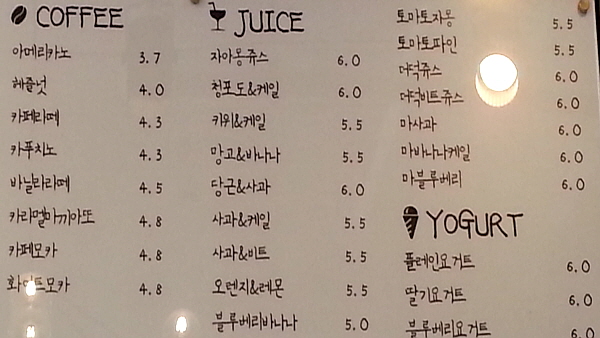 COFFEE
아메리카노 3.7
헤즐넛 4.0
카페라떼 4.3
카푸치노 4.3
바닐라라떼 4.5
카라멜마끼아또 4.8
카페모카 4.8
화이트모카 4.8
JUICE
자아몽쥬스 6.0
청포도&케일 6.0
키위&케일 5.5
망고&바나나 5.5
당근&사과 6.0
사과&케일 5.5
사과&비트 5.5
오렌지&레몬 5.5
블루베리바나나 5.0
토마토자몽 5.5
토마토파인 5.5
더덕쥬스 6.0
더덕비트쥬스 6.0
마사과 6.0
마바나나케일 6.0
마블루베리 6.0
YOGURT
플레인요거트 6.0
딸기요거트 6.0
블루베리요거트 6.0